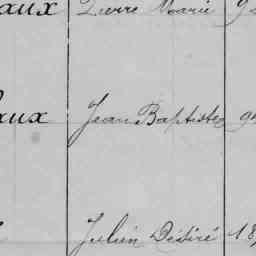 aux Pierre Marie
aux Jean Baptiste
Julien Désiré 18